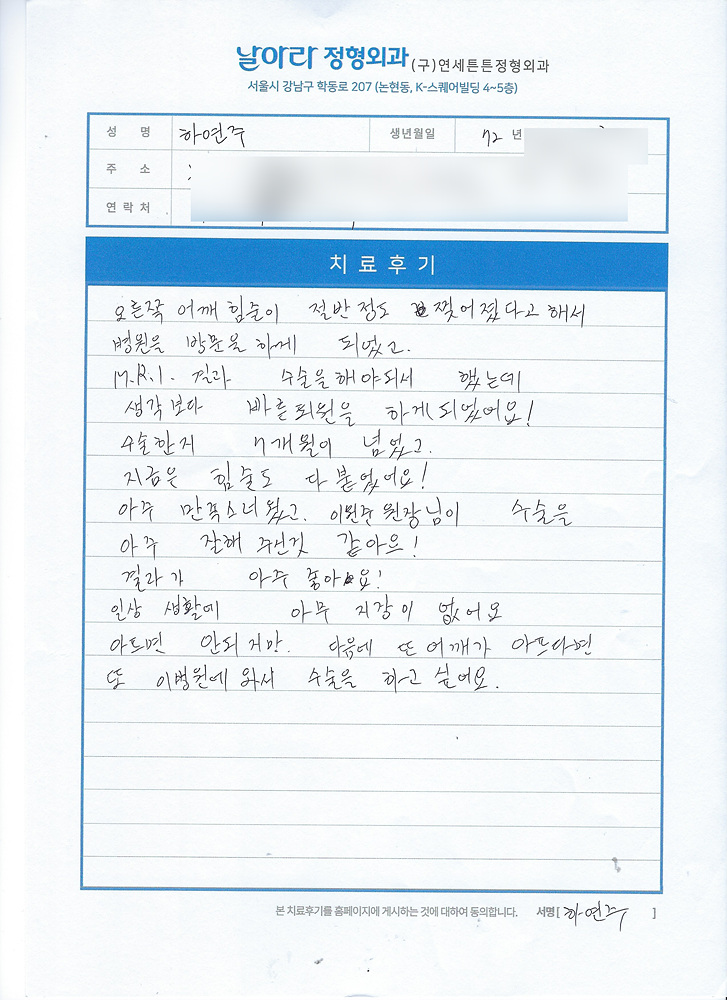 날아라 정형외과 (구)연세튼튼정형외과
서울시 강남구 학동로 207 (논현동, K-스퀘어빌딩 4~5층)
성 명 하연주 생년월일 72 년
주 소
연 락 처
치 료 후 기
오른쪽 어깨 힘줄이 절반정도 찢어졌다고 해서
병원을 방문을 하게 되었고.
M.R.I. 결과 수술을 해야되서 했는데
생각보다 빠른퇴원을 하게되었어요!
수술한지 7개월이 넘었고.
지금은 힘줄도 다 붙었어요!
아주 만족스러웠고. 이원준 원장님이 수술을
아주 잘해 주신것 같아요!
결과가 아주 좋아요!
일상 생활에 아무 지장이 없어요
아프면 안되지만. 다음에 또 어깨가 아프다면
또 이병원에 와서 수술을 하고 싶어요.
본 치료후기를 홈페이지에 게시하는 것에 대하여 동의합니다. 서명 [ 하연주 ]